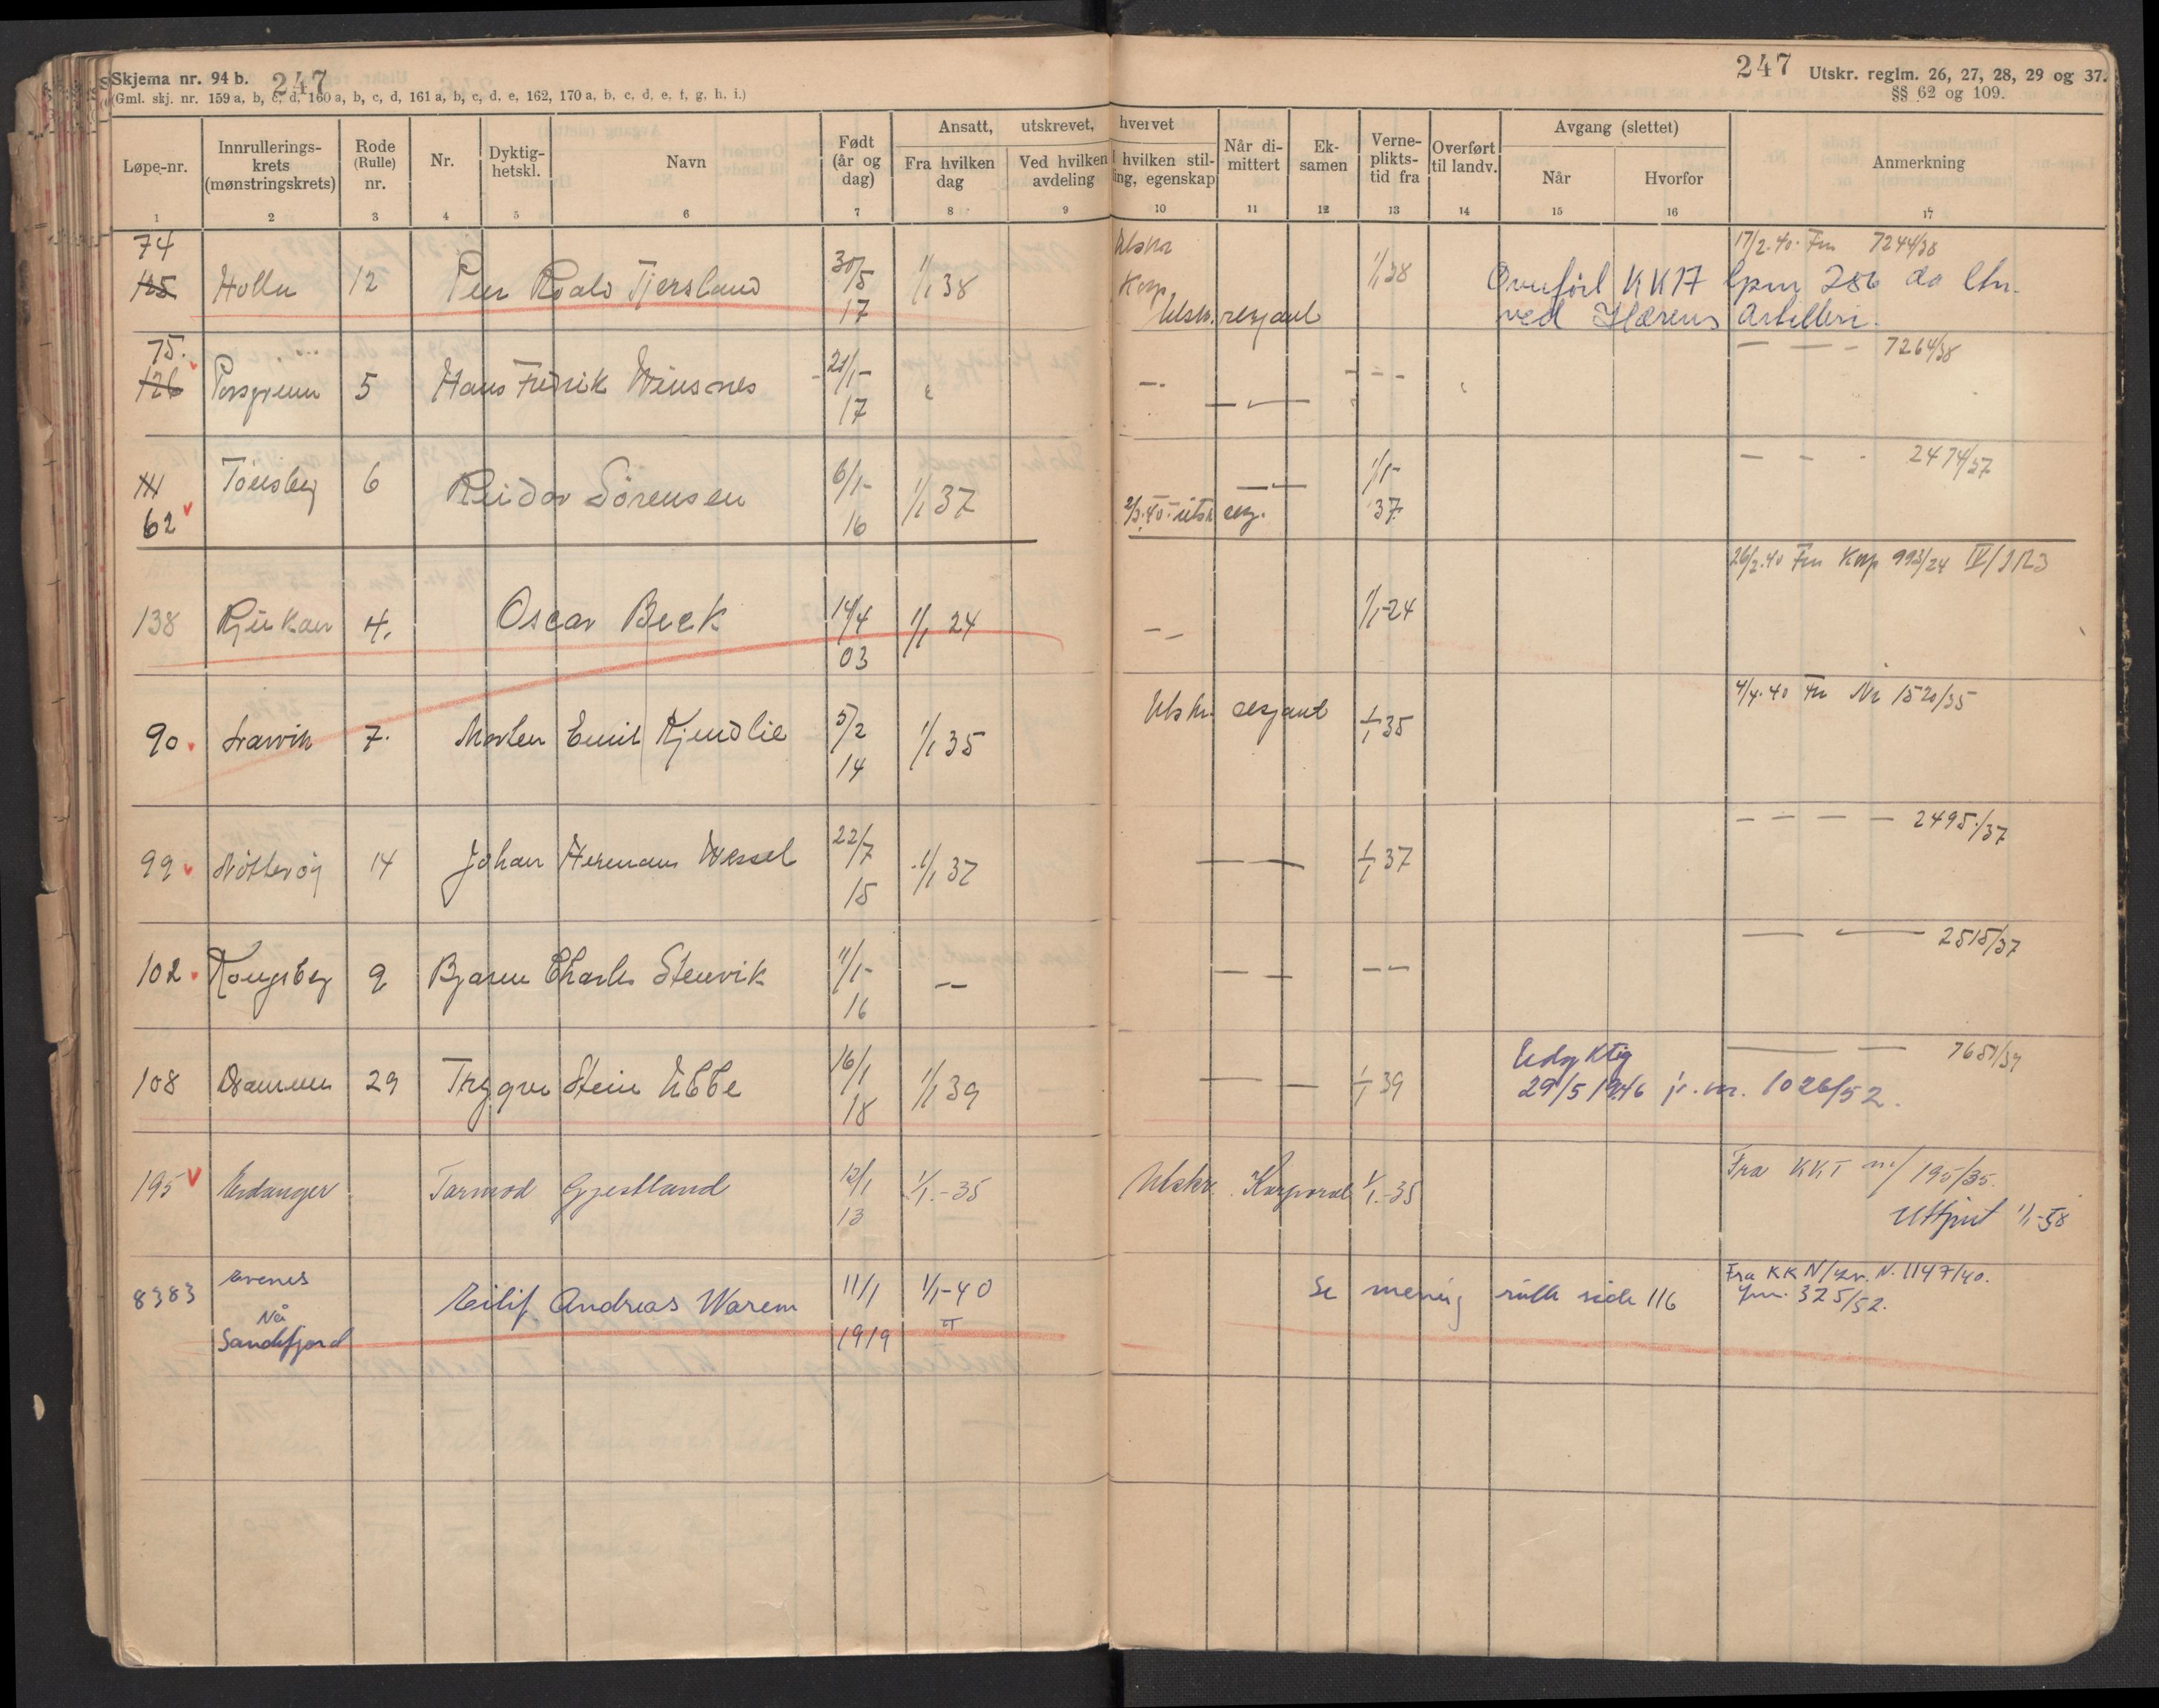 Skjema nr. 94 b. 247
(Gml. skj. nr. 159 a, b, c, d, 160 a, b, c, d, 161 a, b, c, d, e, 162, 170 a, b, c, d, e, f, g, h, i.)
247 Utskr. reglm. 26, 27, 28, 29 og 37.
§§ 62 og 109.
Løpe-nr. Innrullerings-krets (mønstringskrets) Rode (Rulle) nr. Nr. Dyktig-hetskl. Navn Født (år og dag) Ansatt, utskrevet, hvervet Fra hvilken dag Ved hvilken avdeling I hvilken stil-ling, egenskap Når di-mittert Ek-samen Verne-plikts-tid fra Overført til landv. Avgang (slettet) Når Hvorfor Anmerkning
1 2 3 4 5 6 7 8 9 10 11 12 13 14 15 16 17
74
125 Holla 12 Peer Roald Tjersland 30/5 17 1/1 38 Utskr Korp. Utskr. sersjant 1/1 38 Overført KK17 lpnr 286 da
ved Hærens Artilleri.
17/2.40. Fra 7244/38
75.
126 Porsgrunn 5 Hans Fredrik Winsnes 21/1- 17 " — — 7264/38
111
62 Tønsberg 6 Reidar Sörensen 6/1- 16 1/1 37 2/3.40. utskr serg. 1/1- 37 — — 2474/37
138 Rjukan 4. Oscar Beck 14/4 03 1/1 24 — 1/1-24 26/2.40 Fra Korp 993/24 IV/IR3
90 Larvik 7. Morten Emil Kjendlie 5/2 14 1/1 35 Utskr. sersjant 1/1 35 4/4.40 Fra Nr 1520/35
99 Nötteröy 14 Johan Hermann Wessel 22/7 15 1/1 37 — — 1/1 37 — — — — 2495/37
102 Kongsberg 9 Bjarne Charles Stenvik 11/1- 16 — — — — — 2515/37
108 Drammen 29 Trygve Stein Ubbe 16/1 18 1/1 39 — — 1/1 39 Udyktig
29/5 1946 jr. nr. 1026/52.
— — 7651/39
195 Eidanger Tormod Gjestland 12/1 13 1/1.-35 Utskr. Korporal 1/1.-35 Fra KKI nr/ 195/35.
Uttjent 1/1-58
8383 Evenes
Nå
Sandefjord Eilif Andreas Warem 11/1 1919 1/1-40 Se menig rulle side 116 Fra KK N/ N. 1147/40.
Jnr. 325/52.